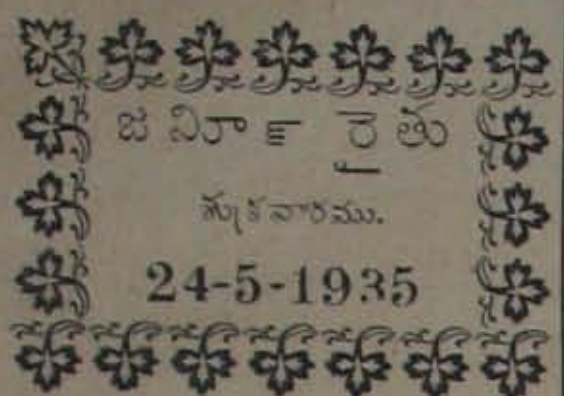 జమీన్ రైతు
శుక్రవారము.
24-5-1935